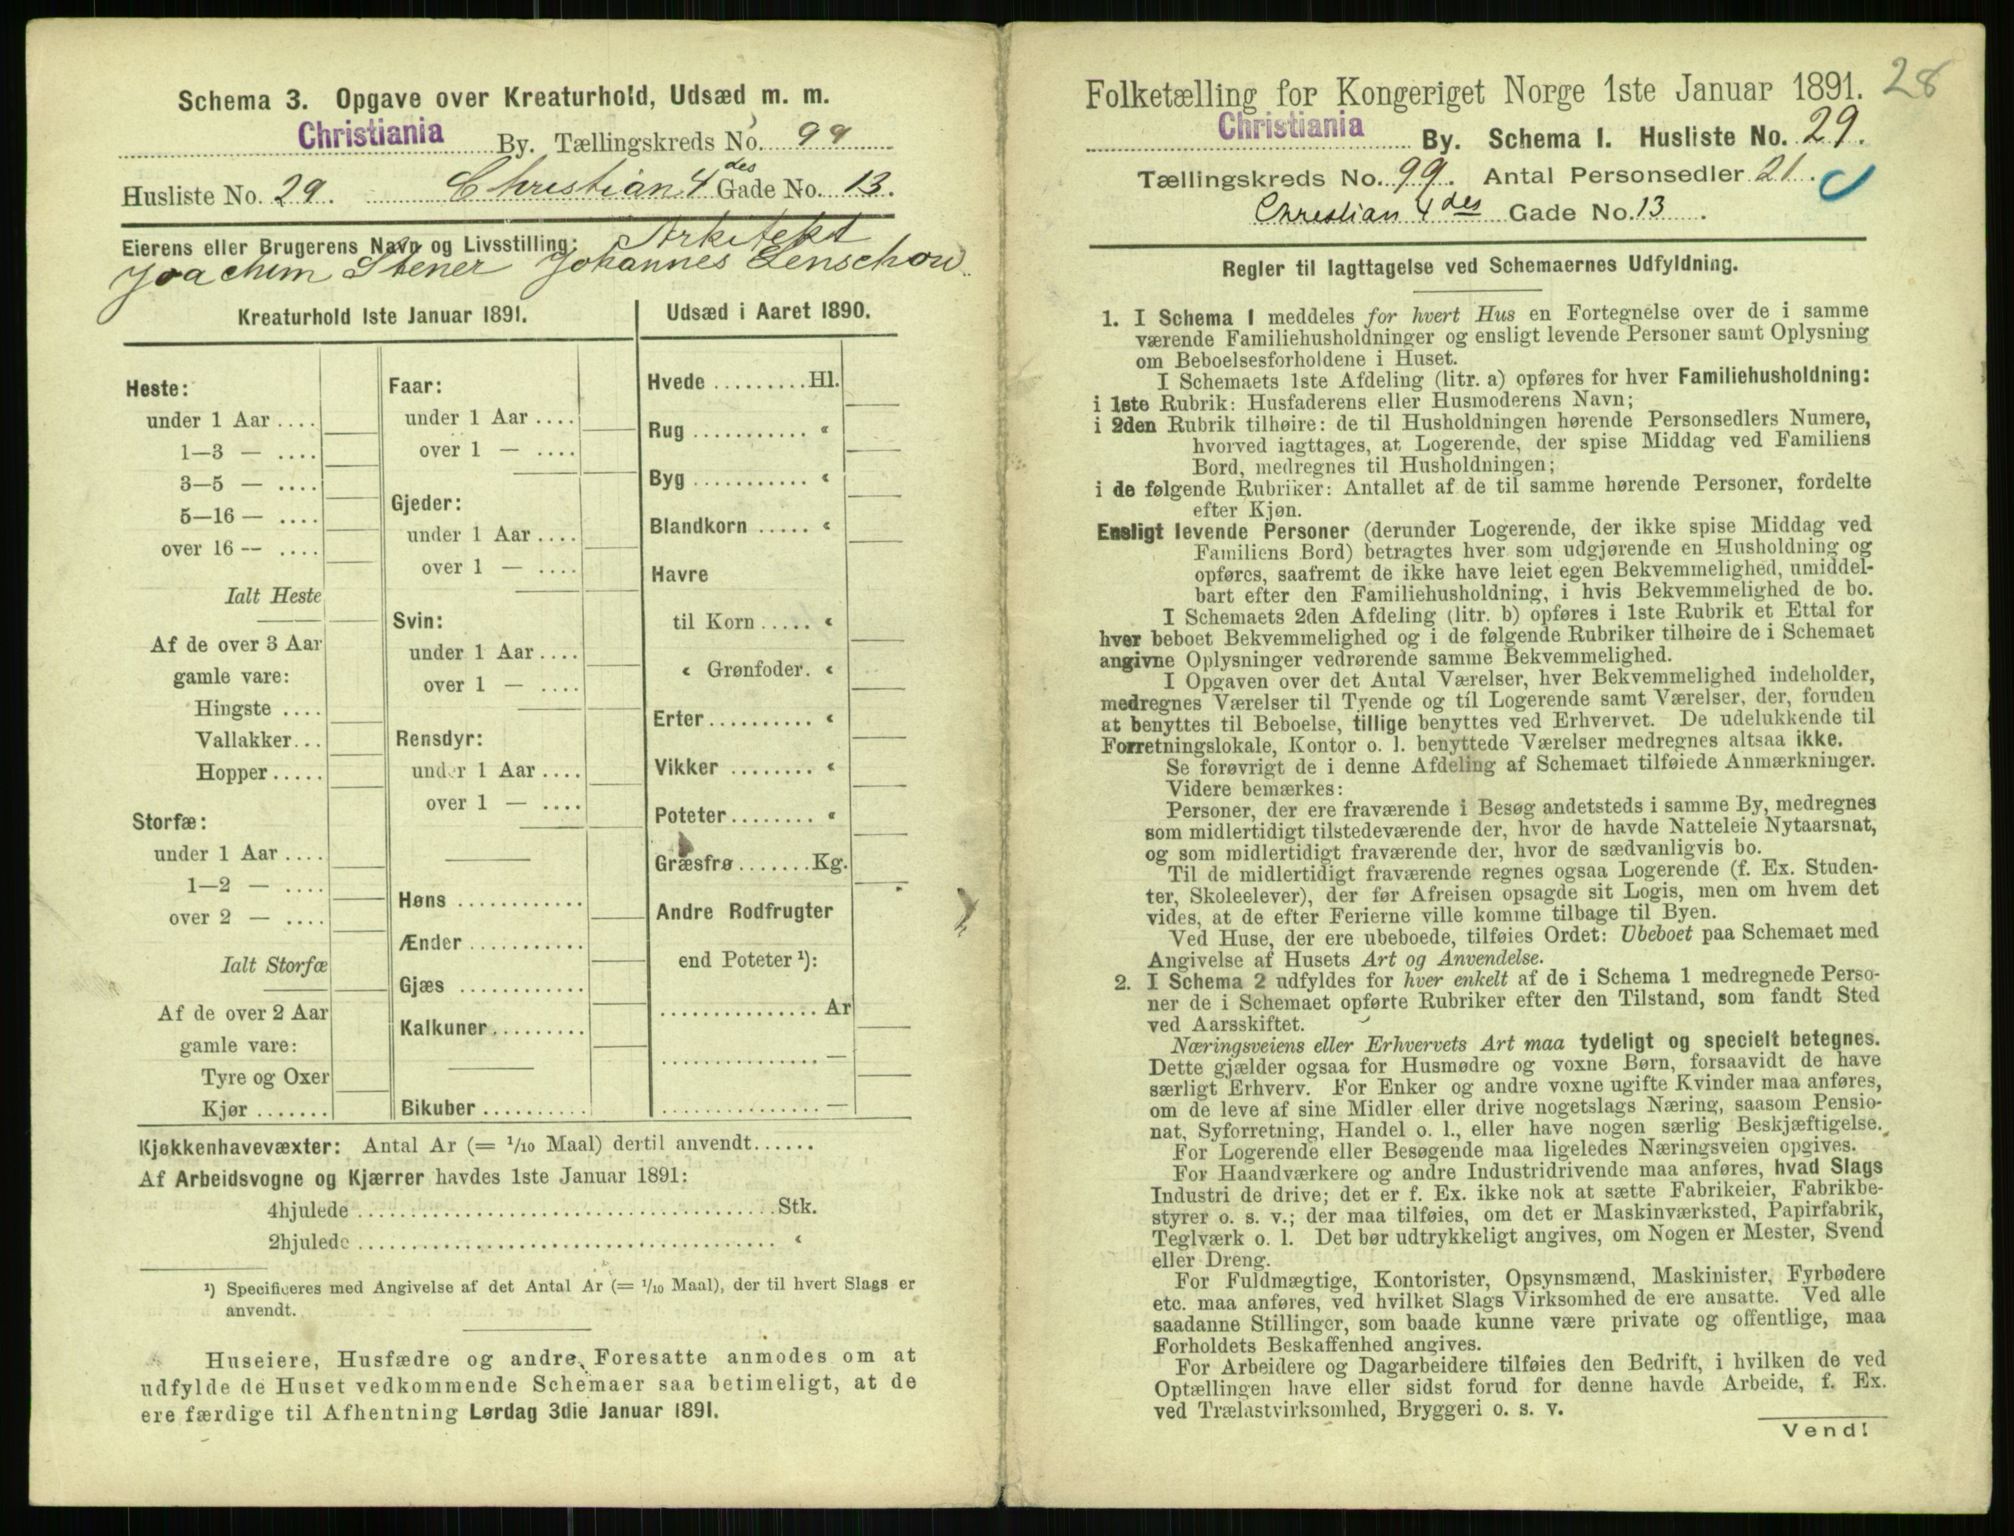 Schema 3. Opgave over Kreaturhold, Udsæd m. m.
Christiania By. Tællingskreds No. 99
Husliste No. 29. Christian 4 des Gade No. 13.
Eierens eller Brugerens Navn og Livsstilling: Arkitekt
Joachim Stener Johannes Lenschow.
Kreaturhold 1ste Januar 1891.
Heste:
under 1 Aar ....
1—3 — ....
3—5 — ....
5—16 — ....
over 16 -- ....
Ialt Heste
Af de over 3 Aar
gamle vare:
Hingste ....
Vallakker...
Hopper.....
Storfæ:
under 1 Aar ....
1—2 — ....
over 2 — ....
Ialt Storfæ
Af de over 2 Aar
gamle vare:
Tyre og Oxer
Kjør .......
Faar:
under 1 Aar ....
over 1 — ....
Gjeder:
under 1 Aar ....
over 1 — ....
Svin:
under 1 Aar ....
over 1 — ....
Rensdyr:
under 1 Aar ....
over 1 — ....
Høns ............
Ænder ...........
Gjæs ............
Kalkuner.........
Bikuber ..........
Udsæd i Aaret 1890.
Hvede .........Hl.
Rug ........... «
Byg ........... «
Blandkorn ..... «
Havre
til Korn ..... «
« Grønfoder. «
Erter.......... «
Vikker ........ «
Poteter........ «
Græsfrø .......Kg.
Andre Rodfrugter
end Poteter ¹):
............... Ar
............... —
............... —
Kjøkkenhavevæxter: Antal Ar (= 1/10 Maal) dertil anvendt......
Af Arbeidsvogne og Kjærrer havdes 1ste Januar 1891:
4hjulede ........................................Stk.
2hjulede ........................................ «
¹) Specificeres med Angivelse af det Antal Ar (= 1/10 Maal), der til hvert Slags er
anvendt.
Huseiere, Husfædre og andre Foresatte anmodes om at
udfylde de Huset vedkommende Schemaer saa betimeligt, at de
ere færdige til Afhentning Lørdag 3die Januar 1891.
28
Folketælling for Kongeriget Norge 1ste Januar 1891.
Christiania By. Schema I. Husliste No. 29.
Tællingskreds No. 99. Antal Personsedler 21.
Christian 4 des Gade No. 13.
Regler til Iagttagelse ved Schemaernes Udfyldning.
1. I Schema 1 meddeles for hvert Hus en Fortegnelse over de i samme
værende Familiehusholdninger og ensligt levende Personer samt Oplysning
om Beboelsesforholdene i Huset.
I Schemaets 1ste Afdeling (litr. a) opføres for hver Familiehusholdning:
i 1ste Rubrik: Husfaderens eller Husmoderens Navn;
i 2den Rubrik tilhøire: de til Husholdningen hørende Personsedlers Numere,
hvorved iagttages, at Logerende, der spise Middag ved Familiens
Bord, medregnes til Husholdningen;
i de følgende Rubriker: Antallet af de til samme hørende Personer, fordelte
efter Kjøn.
Ensligt levende Personer (derunder Logerende, der ikke spise Middag ved
Familiens Bord) betragtes hver som udgjørende en Husholdning og
opføres, saafremt de ikke have leiet egen Bekvemmelighed, umiddel-
bart efter den Familiehusholdning, i hvis Bekvemmelighed de bo.
I Schemaets 2den Afdeling (litr. b) opføres i 1ste Rubrik et Ettal for
hver beboet Bekvemmelighed og i de følgende Rubriker tilhøire de i Schemaet
angivne Oplysninger vedrørende samme Bekvemmelighed.
I Opgaven over det Antal Værelser, hver Bekvemmelighed indeholder,
medregnes Værelser til Tyende og til Logerende samt Værelser, der, foruden
at benyttes til Beboelse, tillige benyttes ved Erhvervet. De udelukkende til
Forretningslokale, Kontor o. l. benyttede Værelser medregnes altsaa ikke.
Se forøvrigt de i denne Afdeling af Schemaet tilføiede Anmærkninger.
Videre bemærkes:
Personer, der ere fraværende i Besøg andetsteds i samme By, medregnes
som midlertidigt tilstedeværende der, hvor de havde Natteleie Nytaarsnat,
og som midlertidigt fraværende der, hvor de sædvanligvis bo.
Til de midlertidigt fraværende regnes ogsaa Logerende (f. Ex. Studen-
ter, Skoleelever), der før Afreisen opsagde sit Logis, men om hvem det
vides, at de efter Ferierne ville komme tilbage til Byen.
Ved Huse, der ere ubeboede, tilføies Ordet: Ubeboet paa Schemaet med
Angivelse af Husets Art og Anvendelse.
2. I Schema 2 udfyldes for hver enkelt af de i Schema 1 medregnede Perso-
ner de i Schemaet opførte Rubriker efter den Tilstand, som fandt Sted
ved Aarsskiftet.
Næringsveiens eller Erhvervets Art maa tydeligt og specielt betegnes.
Dette gjælder ogsaa for Husmødre og voxne Børn, forsaavidt de have
særligt Erhverv. For Enker og andre voxne ugifte Kvinder maa anføres,
om de leve af sine Midler eller drive nogetslags Næring, saasom Pensio-
nat, Syforretning, Handel o. l., eller have nogen særlig Beskjæftigelse.
For Logerende eller Besøgende maa ligeledes Næringsveien opgives.
For Haandværkere og andre Industridrivende maa anføres, hvad Slags
Industri de drive; det er f. Ex. ikke nok at sætte Fabrikeier, Fabrikbe-
styrer o. s. v.; der maa tilføies, om det er Maskinværksted, Papirfabrik,
Teglværk o. l. Det bør udtrykkeligt angives, om Nogen er Mester, Svend
eller Dreng.
For Fuldmægtige, Kontorister, Opsynsmænd, Maskinister, Fyrbødere
etc. maa anføres, ved hvilket Slags Virksomhed de ere ansatte. Ved alle
saadanne Stillinger, som baade kunne være private og offentlige, maa
Forholdets Beskaffenhed angives.
For Arbeidere og Dagarbeidere tilføies den Bedrift, i hvilken de ved
Optællingen have eller sidst forud for denne havde Arbeide, f. Ex.
ved Trælastvirksomhed, Bryggeri o. s. v.
Vend!